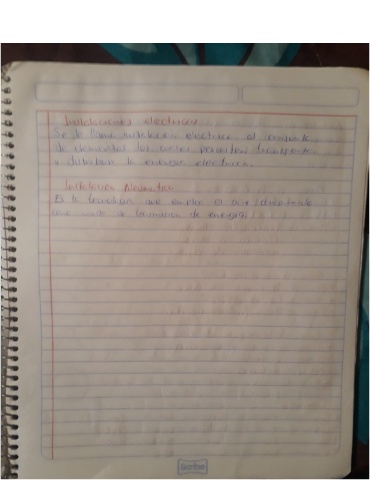 Instalaciones electricas
Se le llama instalacion electrica al conjunto
de elementos los cuales permiten transportar
y distribuir la energia electrica.
Instalacion Neumatica
Es la tecnologia que emplea el aire
como modo de transmision de energia
Scribe